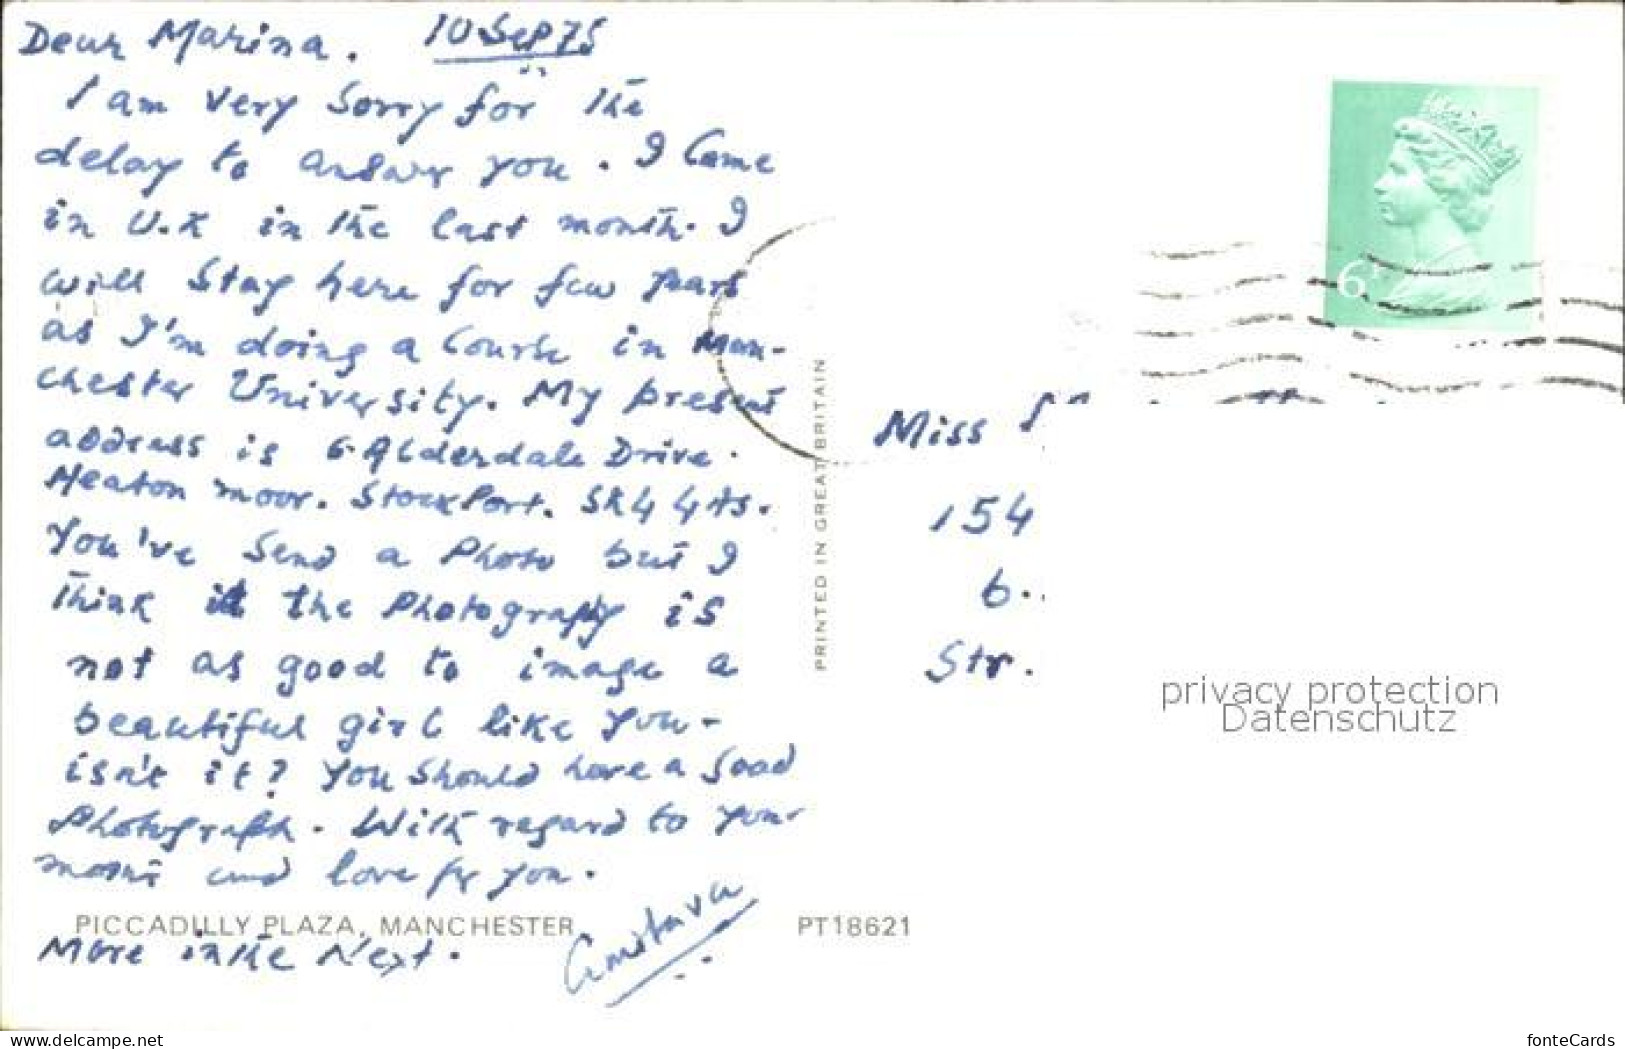 Dear Marina. 10 Sep 75
I am very sorry for the
delay to answer you. I Came
in U.K in the last month. I
will stay here for few years
as I'm doing a Course in Man-
chester University. My present
address is 6. Alderdale Drive.
Heaton moor. StockPort. SK4 4AS.
You've Send a Photo but I
think it the Photography is
not as good to image a
beautiful girl like you-
isn't it? You Should have a Good
Photograph. With regard to your
and love for you.
PICCADILLY PLAZA, MANCHESTER
More in the Next.
PT18621
PRINTED IN GREAT BRITAIN
6P
Miss
154
6.
Str.
privacy protection
Datenschutz
www.delcampe.net
fonteCards